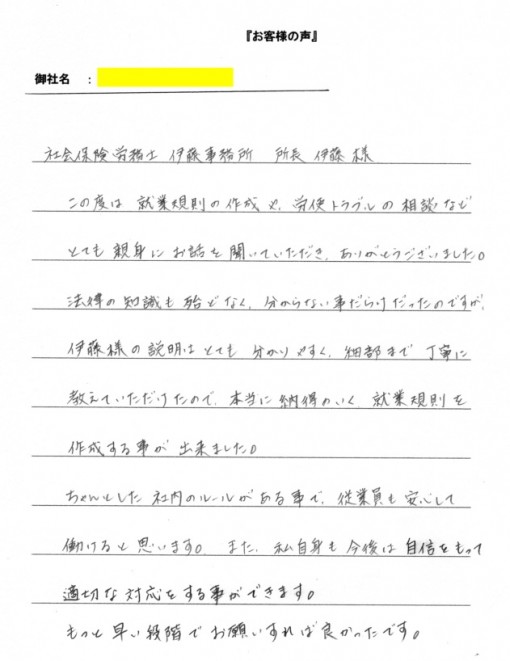 『お客様の声』
御社名　：
社会保険労務士　伊藤事務所　所長　伊藤　様
この度は 就業規則の作成や、労使トラブルの相談など
とても 親身に お話を聞いていただき、ありがとうございました。
法律の知識も 殆どなく、分からない事だらけだったのですが、
伊藤様の説明はとても 分かりやすく、細部まで 丁寧に
教えていただけたので、本当に納得のいく 就業規則を
作成する事が 出来ました。
ちゃんとした 社内のルールがある事で、従業員も 安心して
働けると思います。また、私自身も今後は 自信をもって
適切な対応をする事ができます。
もっと早い段階でお願いすれば良かったです。